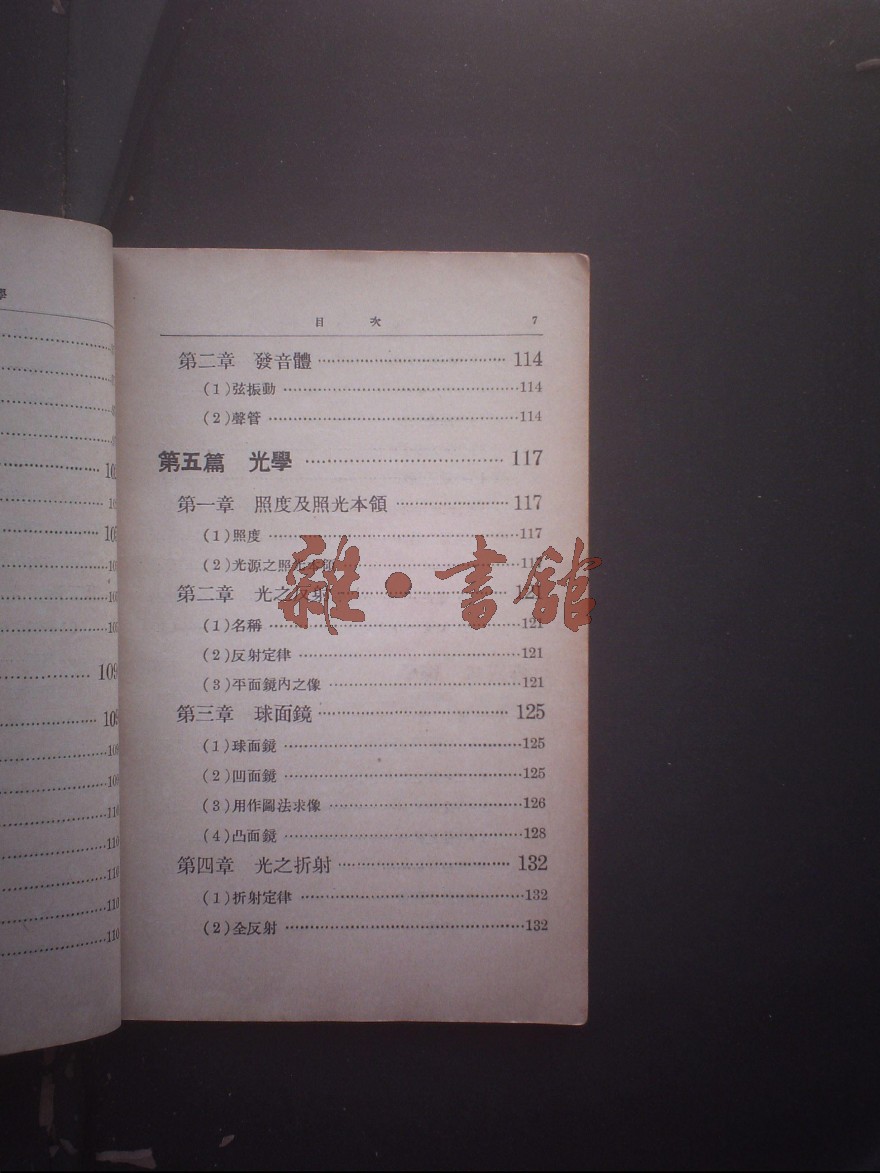 目 次 7
第二章 發音體 114
(1)弦振動 114
(2)聲管 114
第五篇 光學 117
第一章 照度及照光本領 117
(1)照度 117
(2)光源之照光本領 117
第二章 光之反射 121
(1)名稱 121
(2)反射定律 121
(3)平面鏡內之像 121
第三章 球面鏡 125
(1)球面鏡 125
(2)凹面鏡 125
(3)用作圖法求像 126
(4)凸面鏡 128
第四章 光之折射 132
(1)折射定律 132
(2)全反射 132
雜·書館
學
109
110
110
110
110
110